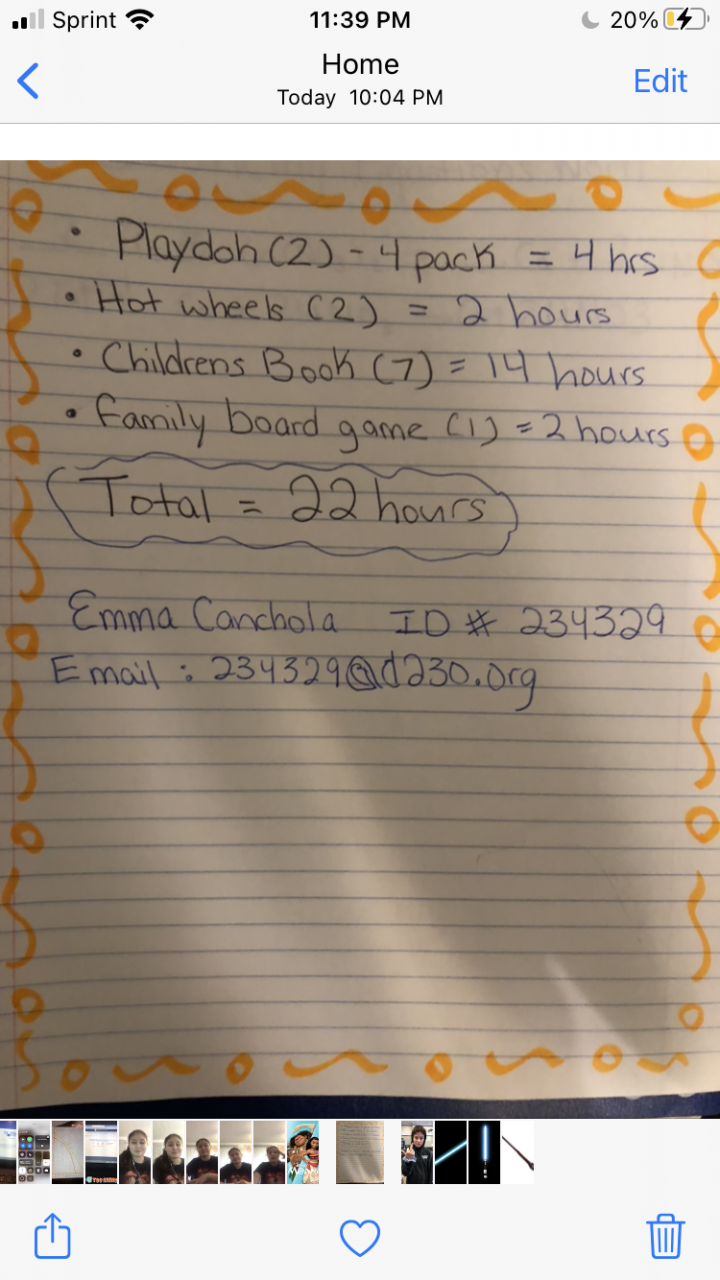 Sprint 11:39 PM 20%
Home
Today 10:04 PM
Edit
• Playdoh (2) - 4 pack = 4 hrs
• Hot wheels (2) = 2 hours
• Childrens Book (7) = 14 hours
• family board game (1) = 2 hours
Total = 22 hours
Emma Canchola ID # 234329
Email : 234329@d230.org